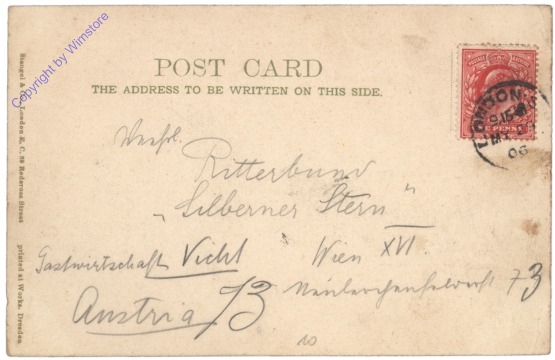 POST CARD
THE ADDRESS TO BE WRITTEN ON THIS SIDE.
Ritterbund
„Silberner Stern"
Gastwirtschaft Vicht Wien XVI.
73
Austria 73
10
LONDON
9.15
06
E PENNY
Stengel & Co., London E. C. 39 Redcross Street printed at Works, Dresden
Copyright by Wimstore